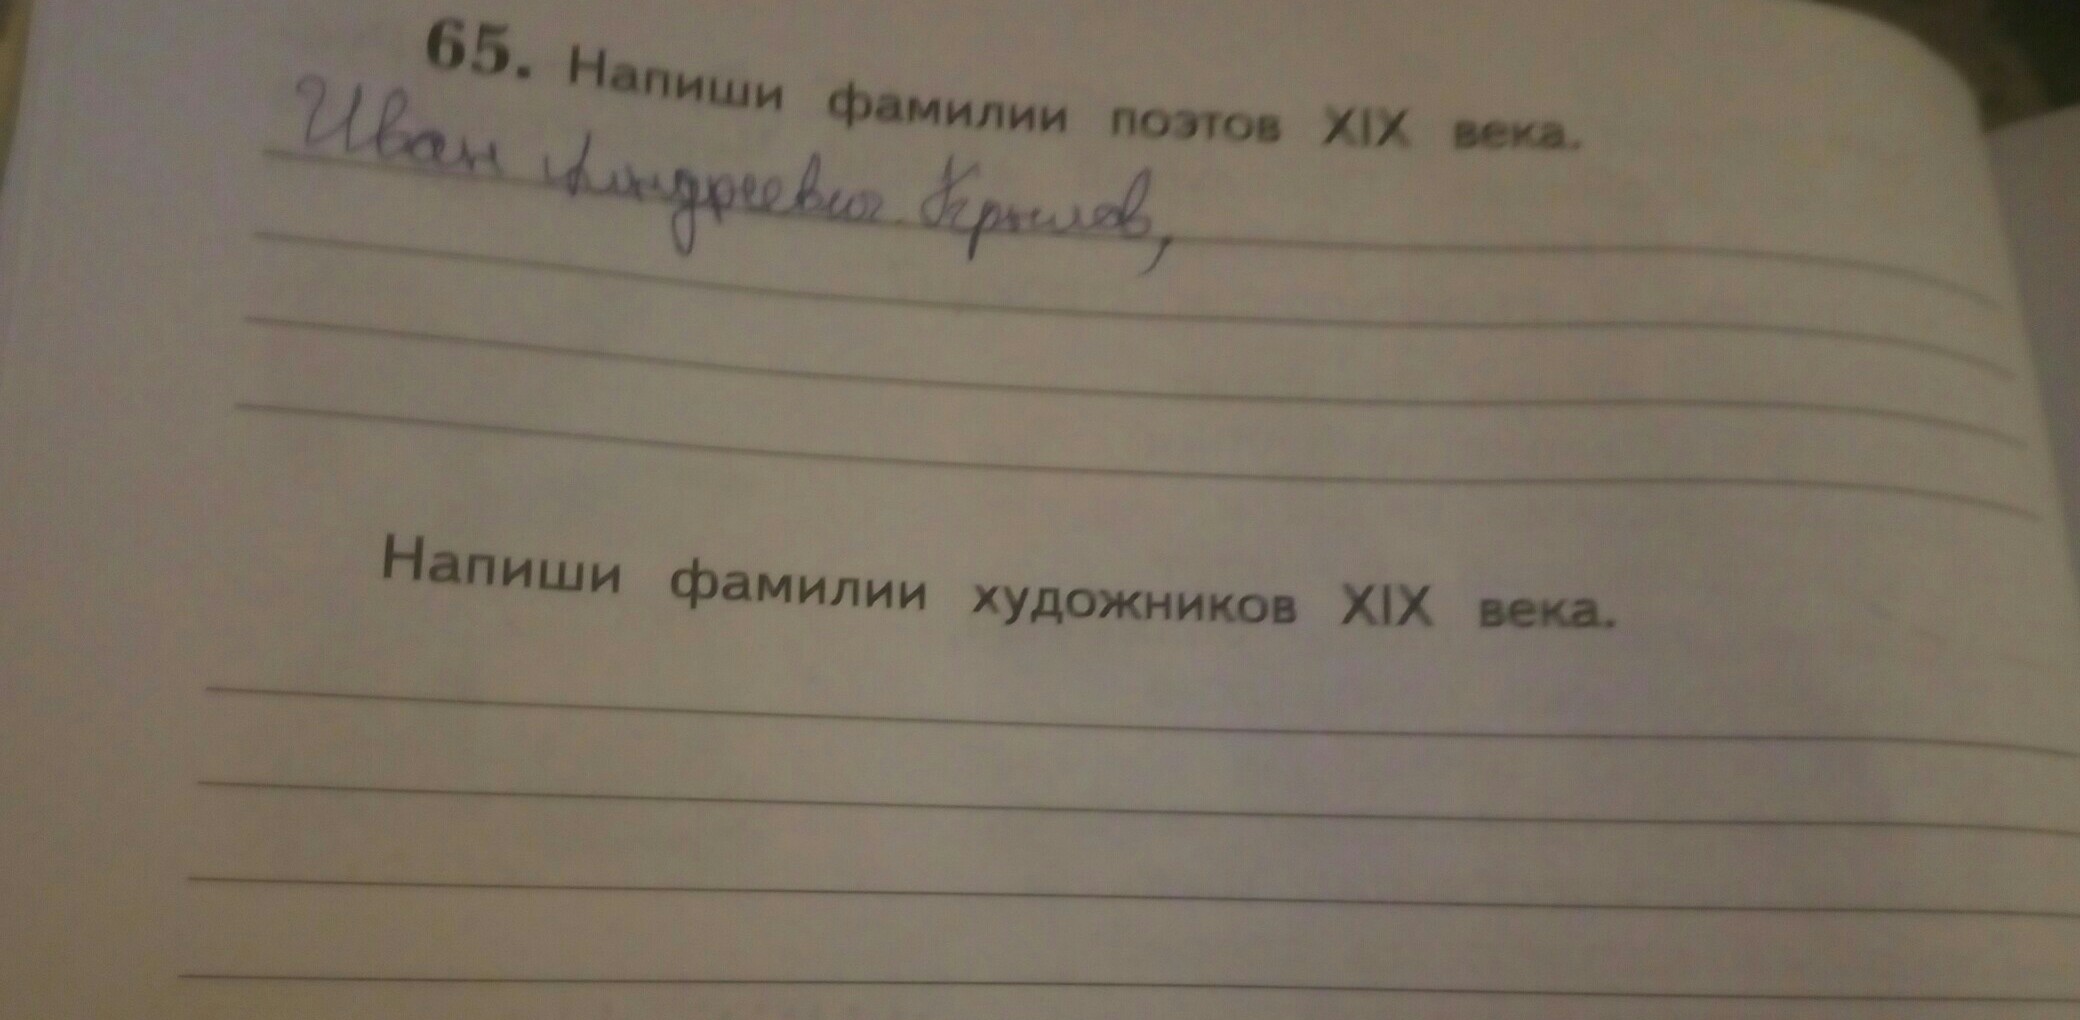 65. Напиши фамилии поэтов XIX века.
Иван Андреевич Крылов,
Напиши фамилии художников XIX века.